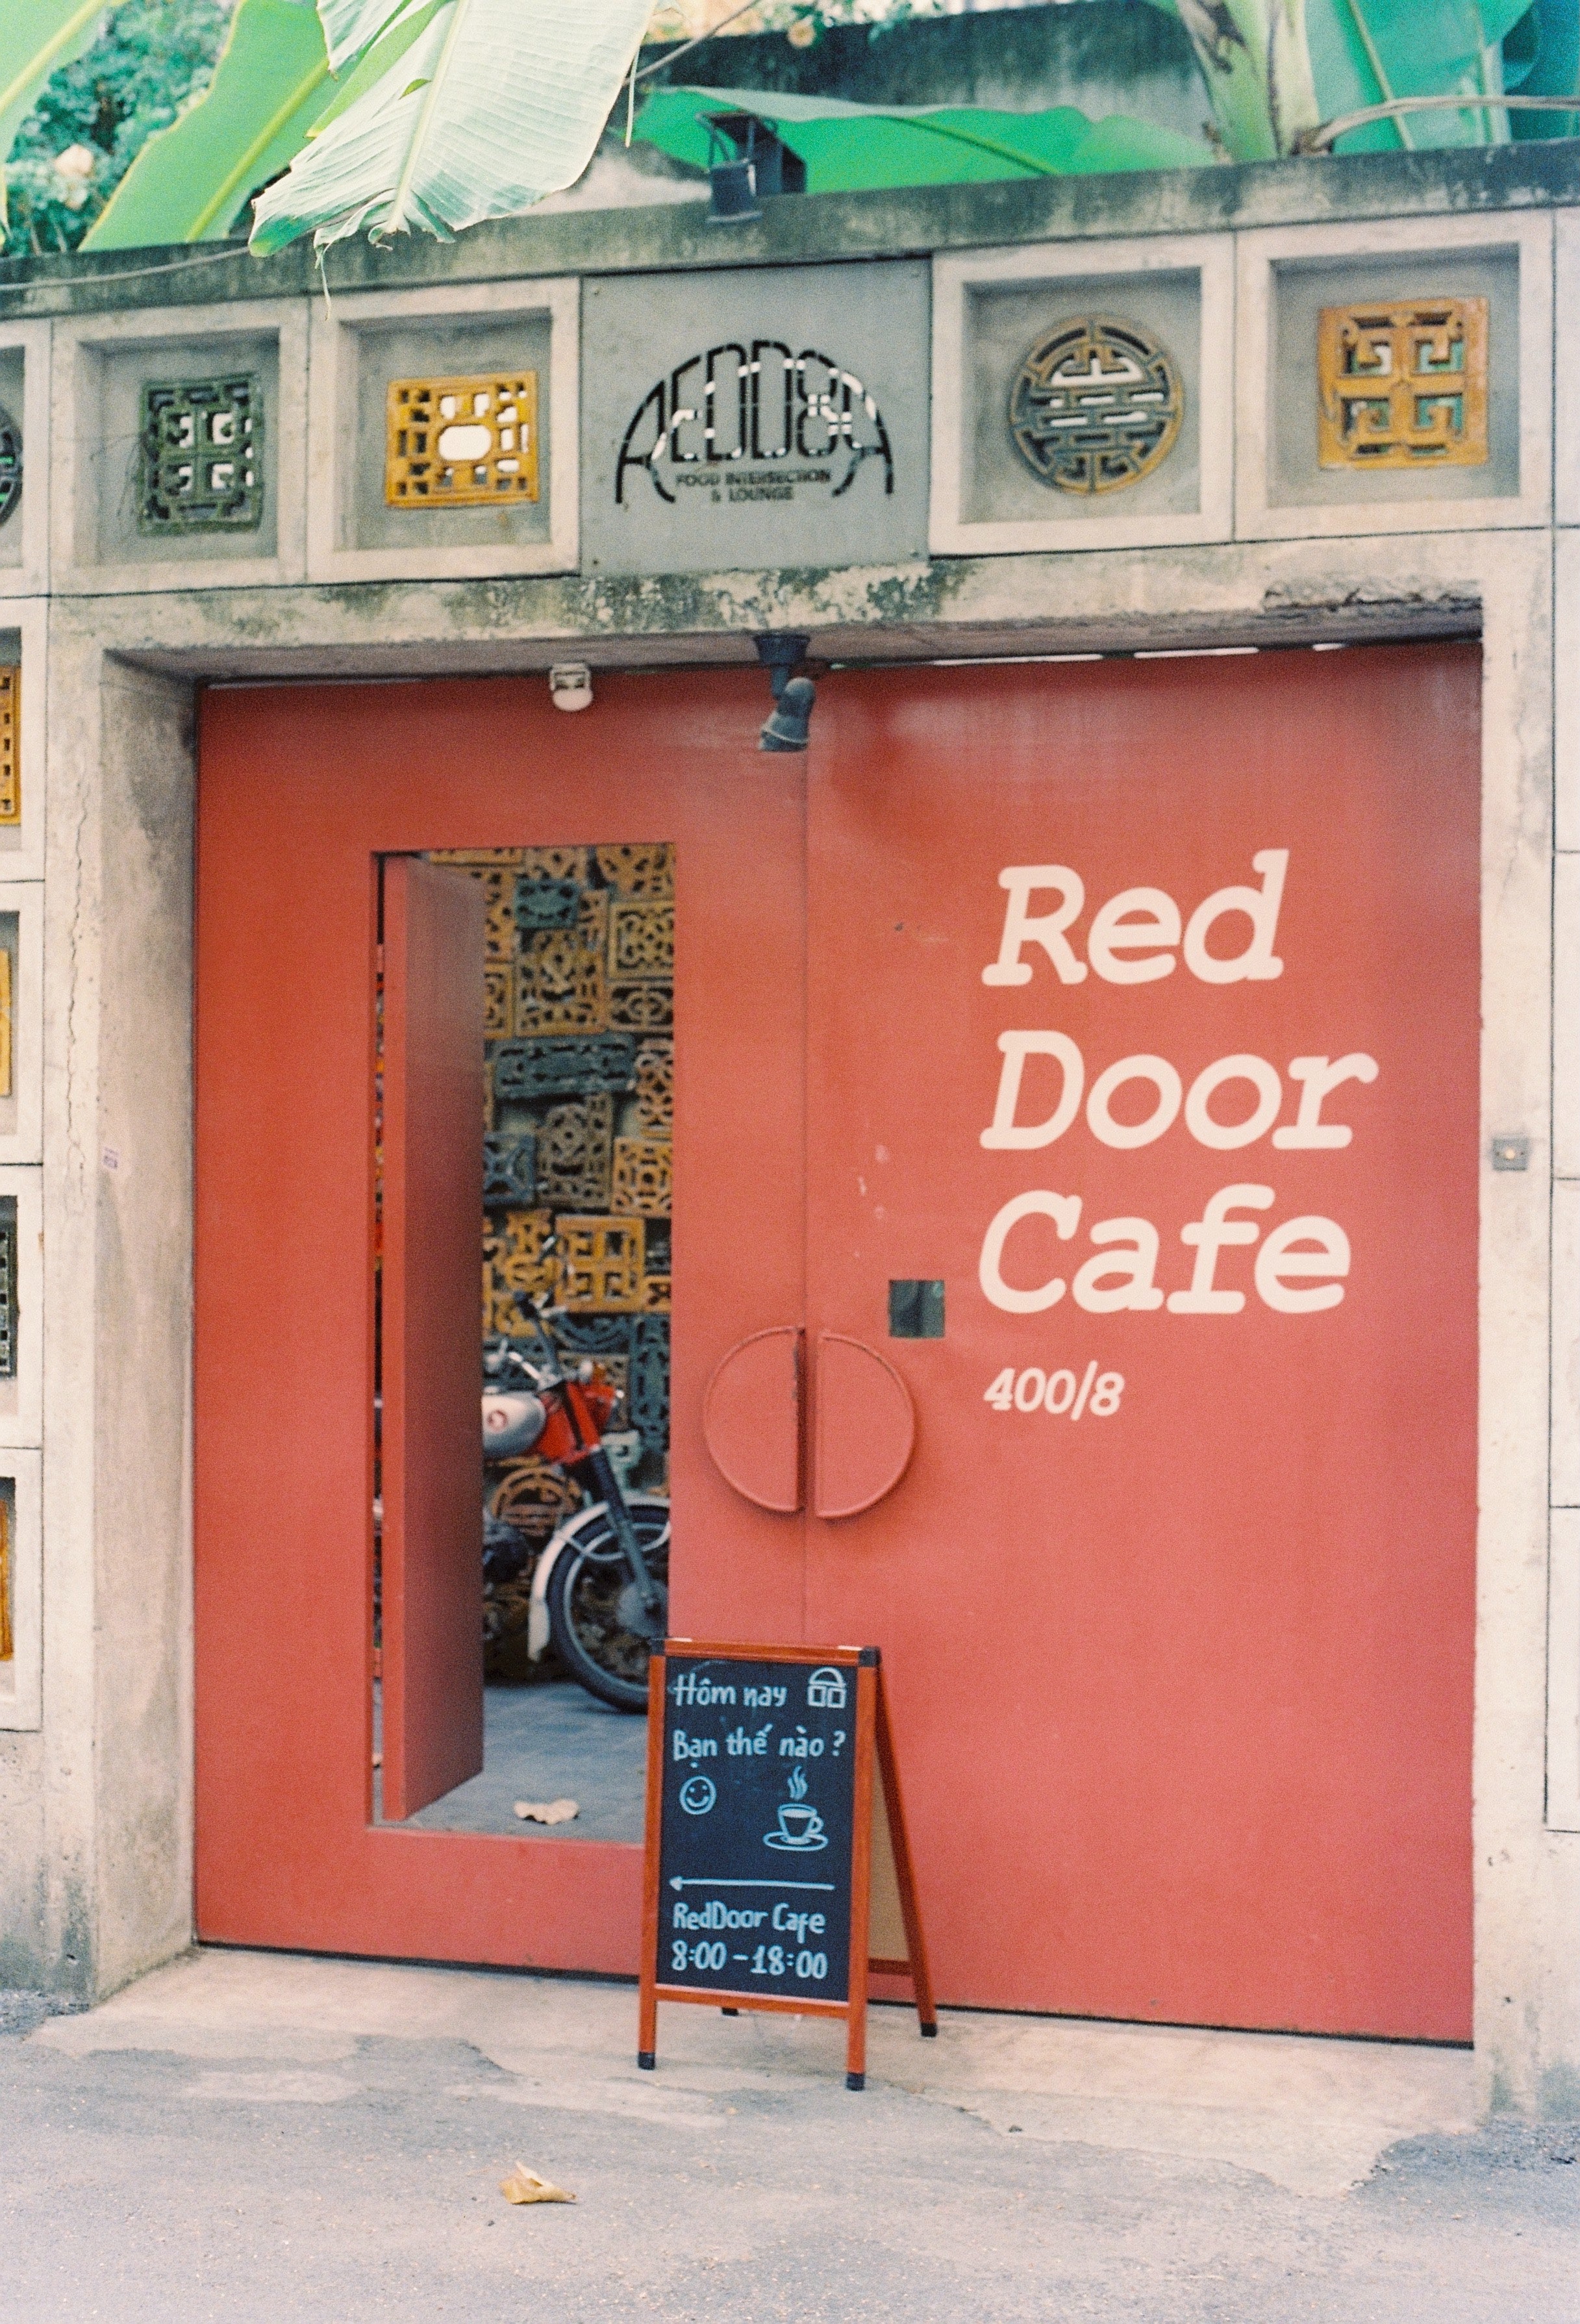 FOOD INTERSECTION
& LOUNGE
Red
Door
Cafe
400/8
Hôm nay
Bạn thế nào?
RedDoor Cafe
8:00-18:00